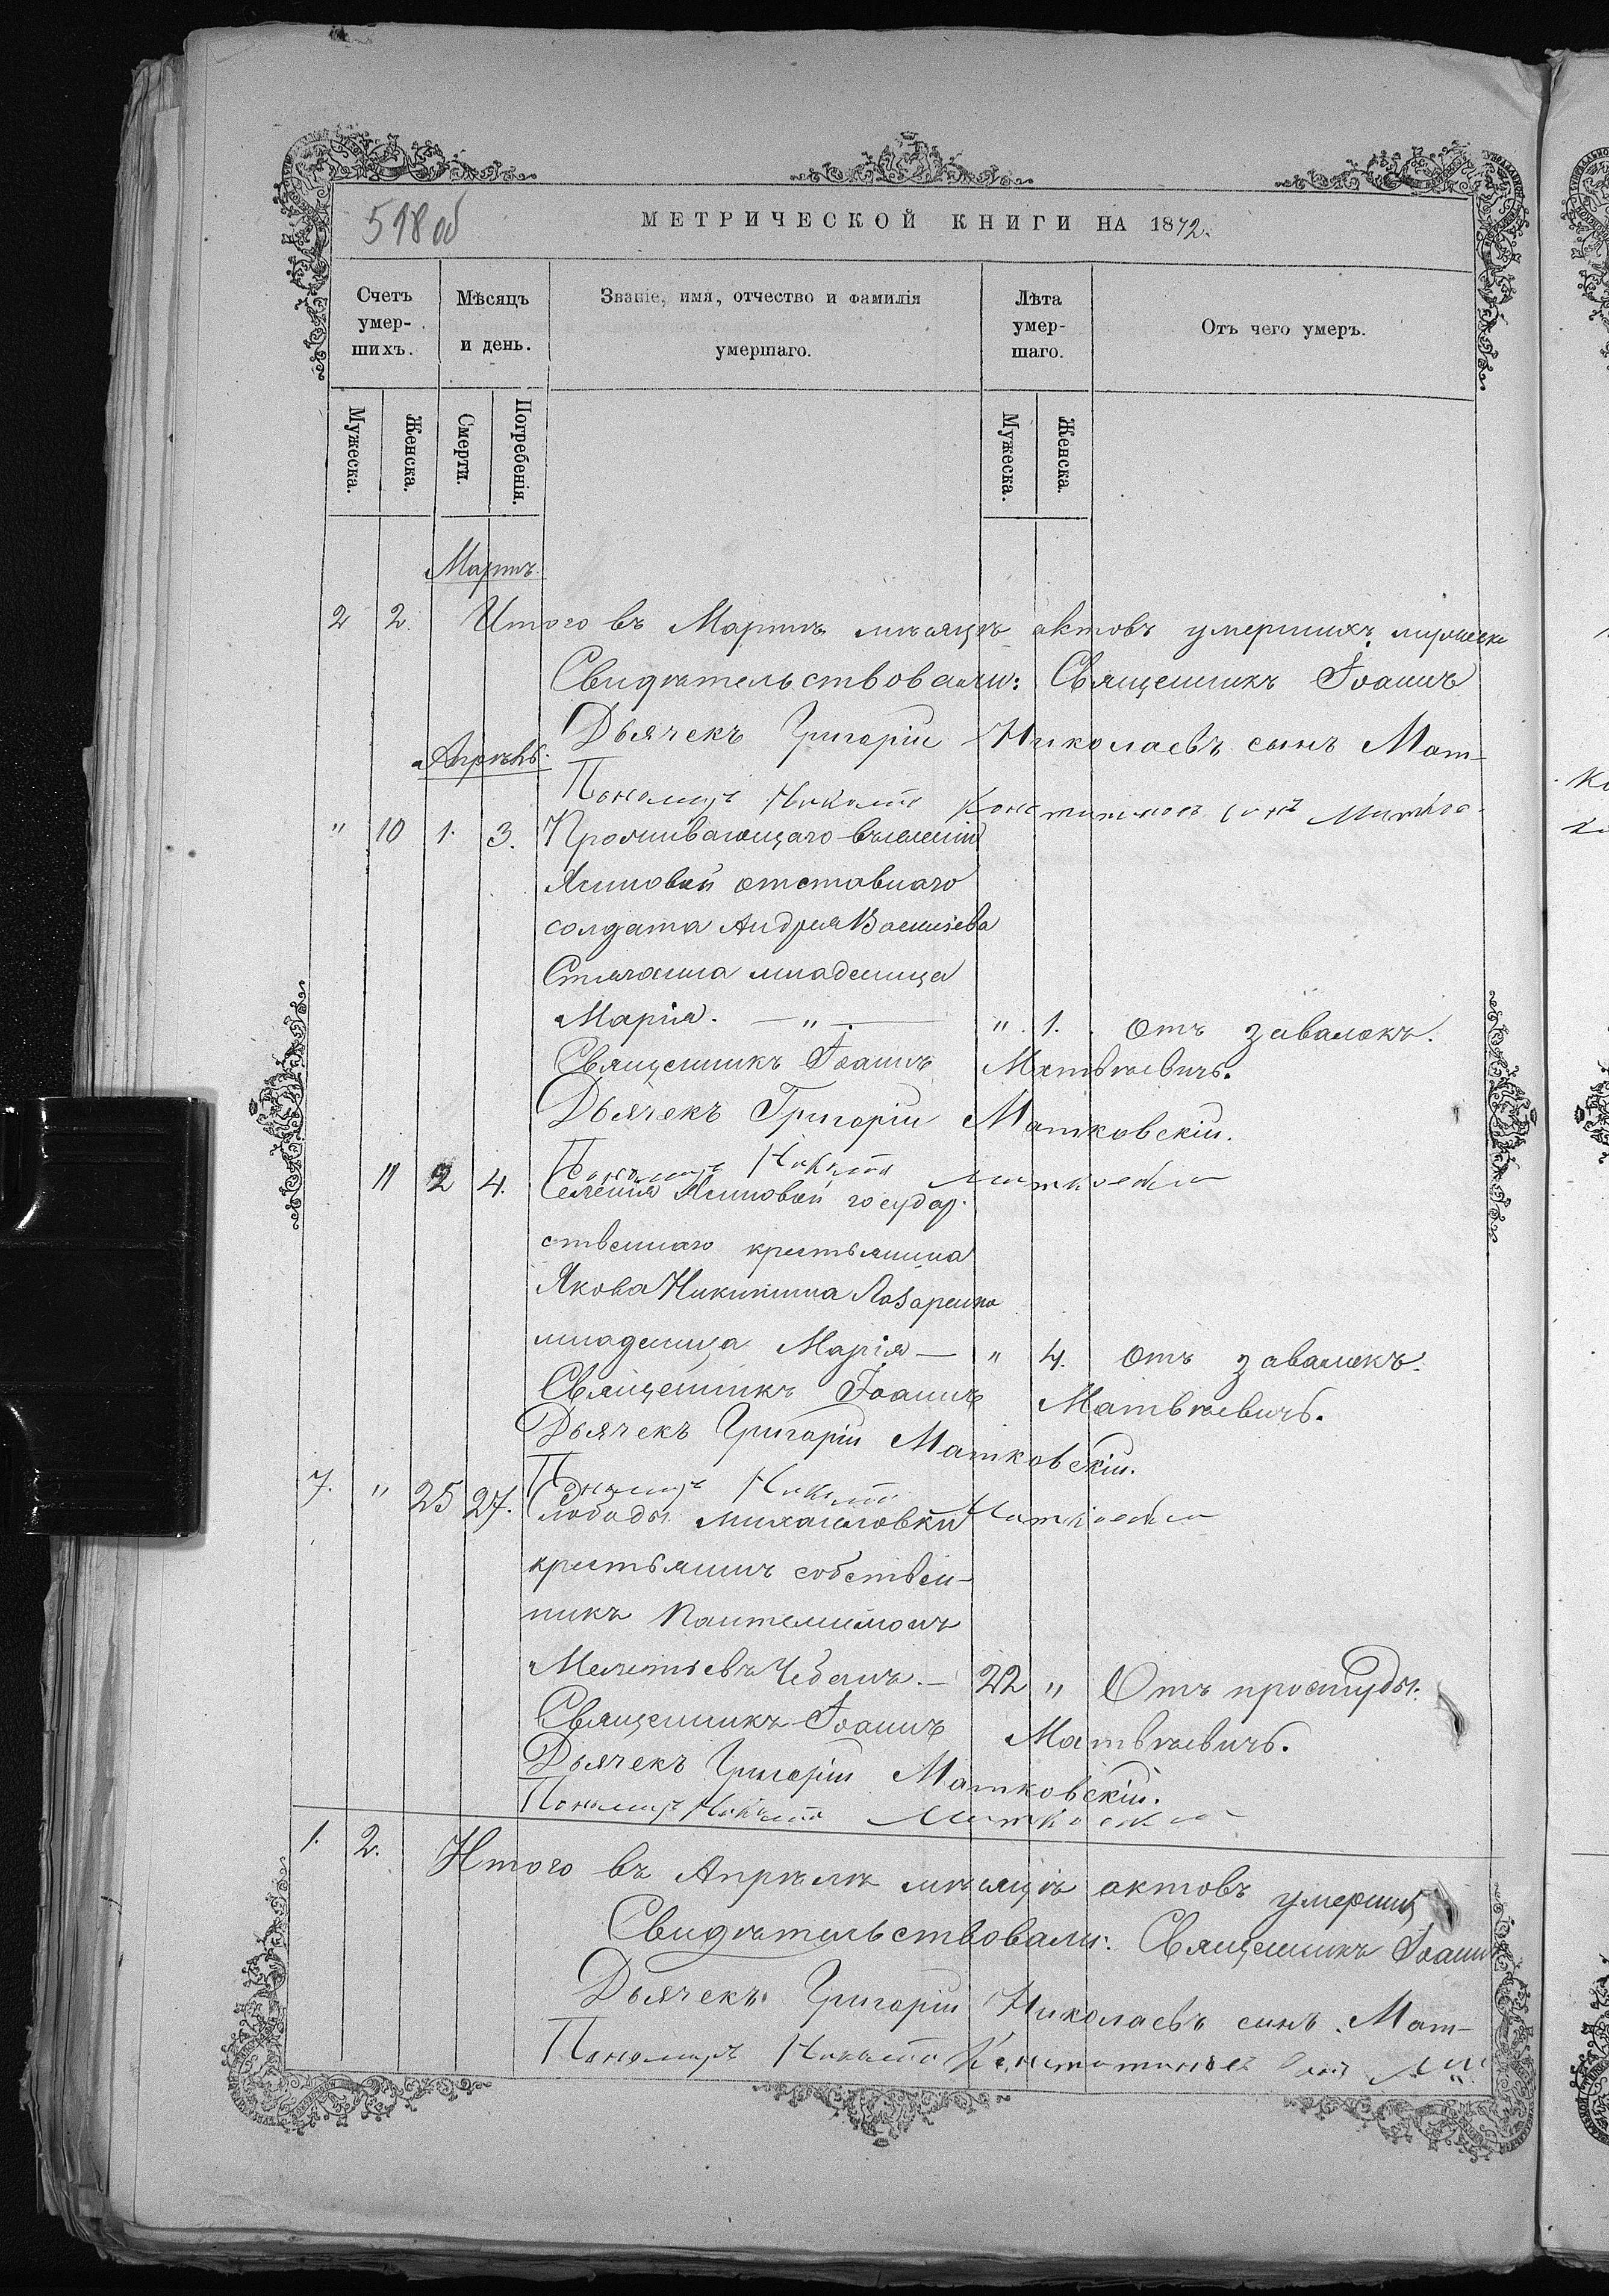 518 об
МЕТРИЧЕСКОЙ КНИГИ НА 1872.
Счетъ умер-шихъ.
Мѣсяцъ и день.
Званіе, имя, отчество и фамилія умершаго.
Лѣта умер-шаго.
Отъ чего умеръ.
Мужеска.
Женска.
Смерти.
Погребенія.
Мужеска.
Женска.
Мартъ.
2 2. Итого въ Мартѣ мѣсяцѣ актовъ умершихъ
Свидѣтельствовали: Священникъ Іоаннъ
Дьячекъ Григорій Николаевъ сынъ Мат-
Апрѣль.
Пономарь Никита Константиновъ сынъ
" 10 1. 3. Проживающаго въ селеніи
отставнаго
солдата Андрея Васильева
младеница
Марія. — " — " 1. Отъ завалокъ.
Священникъ Іоаннъ Матвѣевичъ.
Дьячекъ Григорій Матковскій.
Пономарь Никита Матковскій
11 2 4. Селенія государ-
ственнаго крестьянина
Якова Никитина Лазаренка
младеница Марія — " 4. Отъ завалокъ.
Священникъ Іоаннъ Матвѣевичъ.
Дьячекъ Григорій Матковскій.
Пономарь Никита Матковскій
7. " 25 27. Слободы Михайловки
крестьянинъ собствен-
никъ Пантелимонъ
Мелетьевъ Чебанъ. — 22 " Отъ простуды.
Священникъ Іоаннъ Матвѣевичъ.
Дьячекъ Григорій Матковскій.
Пономарь Никита Матковскій
1. 2. Итого въ Апрѣлѣ мѣсяцѣ актовъ умерших
Свидѣтельствовали: Священникъ Іоаннъ
Дьячекъ Григорій Николаевъ сынъ Мат-
Пономарь Никита Константиновъ сынъ